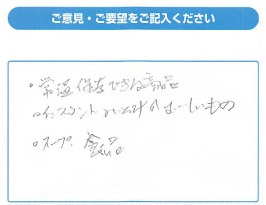 ご意見・ご要望をご記入ください
・常温保存できる商品
・インスタント のおいしいもの
・スープ 食品